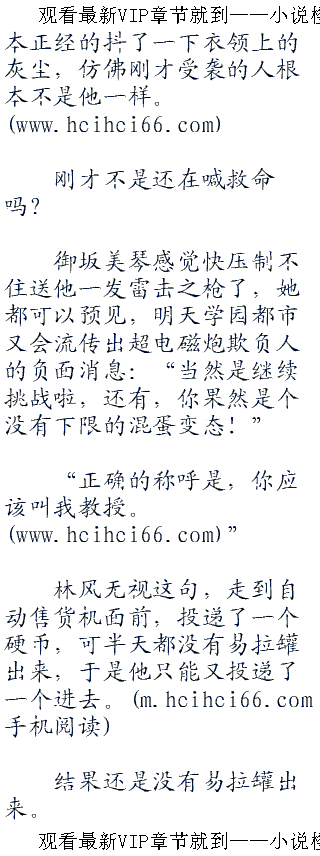 观看最新VIP章节就到——小说
本正经的抖了一下衣领上的
灰尘，仿佛刚才受袭的人根
本不是他一样。
(www.hcihci66.com)
刚才不是还在喊救命
吗？
御坂美琴感觉快压制不
住送他一发雷击之枪了，她
都可以预见，明天学园都市
又会流传出超电磁炮欺负人
的负面消息：“当然是继续
挑战啦，还有，你果然是个
没有下限的混蛋变态！”
“正确的称呼是，你应
该叫我教授。
(www.hcihci66.com)”
林风无视这句，走到自
动售货机面前，投递了一个
硬币，可半天都没有易拉罐
出来，于是他只能又投递了
一个进去。(m.hcihci66.com
手机阅读)
结果还是没有易拉罐出
来。
观看最新VIP章节就到——小说